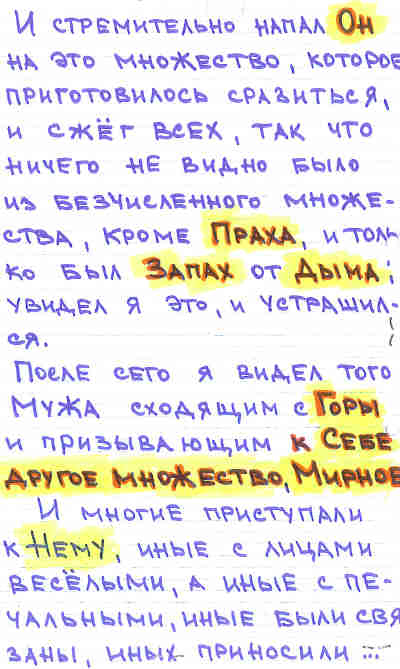 И стремительно напал Он
на это множество, которое
приготовилось сразиться,
и сжёг всех, так что
ничего не видно было
из безчисленного множе-
ства, кроме Праха, и толь
ко был Запах от Дыма;
увидел я это, и устрашил-
ся.
После сего я видел того
Мужа сходящим с Горы
и призывающим к Себе
другое множество, Мирное
И многие приступали
к Нему, иные с лицами
весёлыми, а иные с пе-
чальными, иные были свя
заны, иных приносили ...